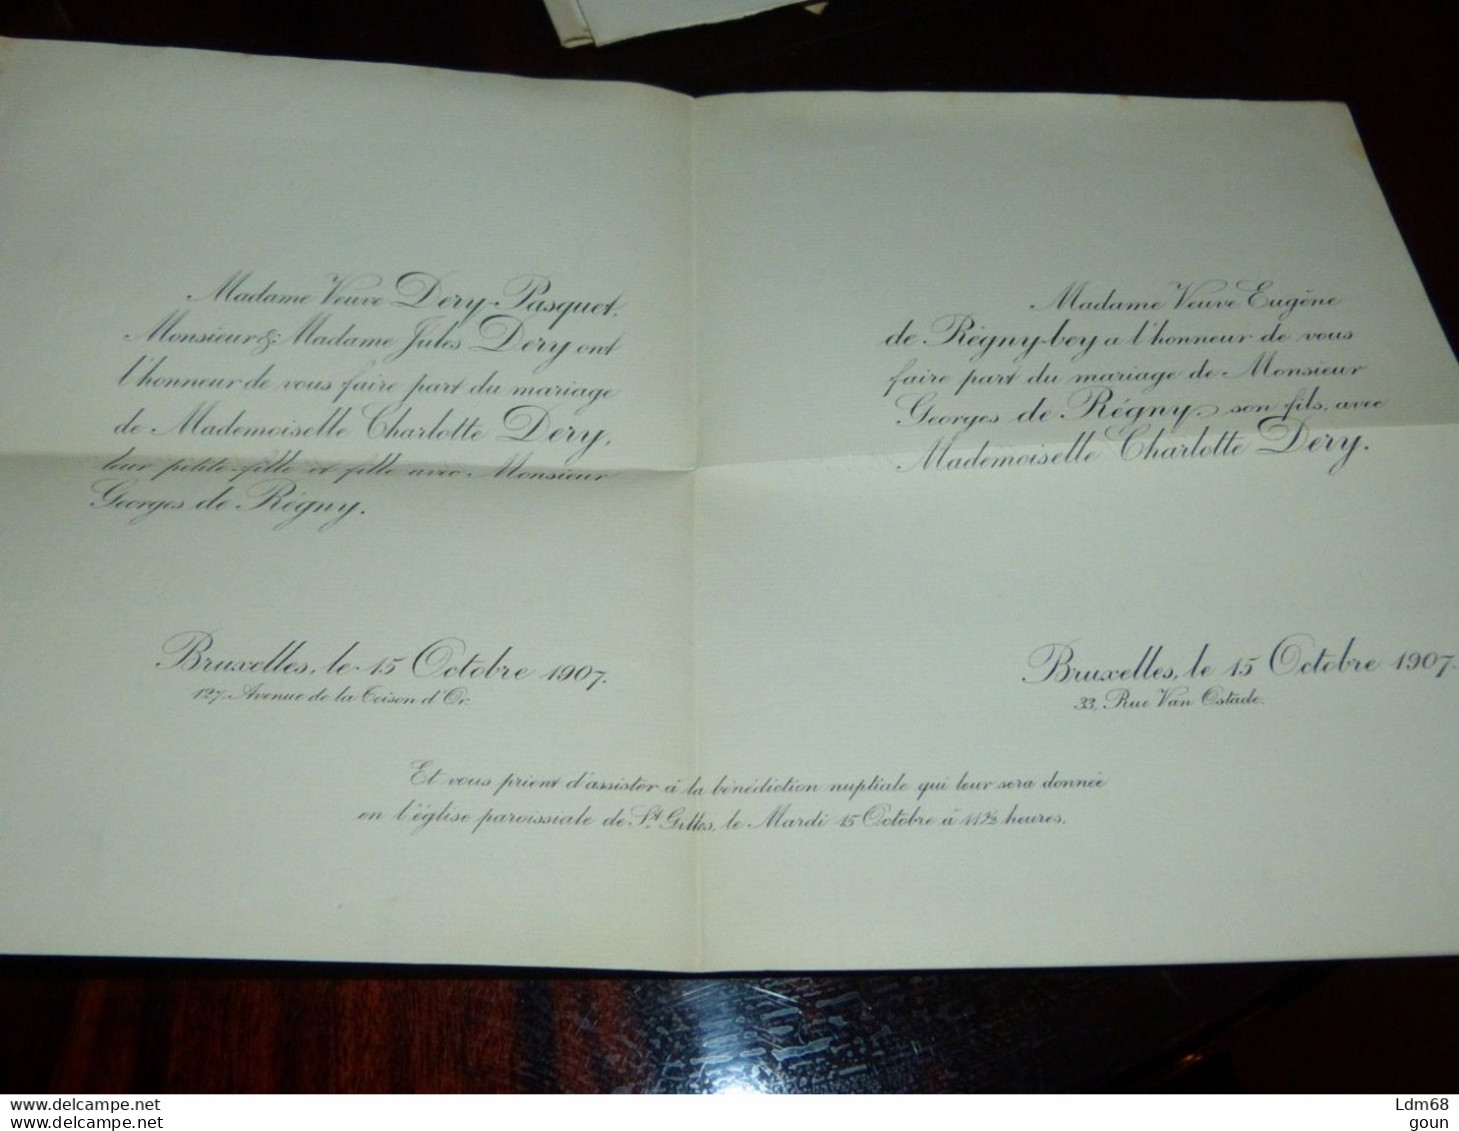 Madame Veuve Dery-Pasquet,
Monsieur & Madame Jules Dery ont
l'honneur de vous faire part du mariage
de Mademoiselle Charlotte Dery,
leur petite-fille et fille avec Monsieur
Georges de Régny.
Bruxelles, le 15 Octobre 1907.
127, Avenue de la Toison d'Or.
Madame Veuve Eugène
de Régny-bey a l'honneur de vous
faire part du mariage de Monsieur
Georges de Régny, son fils, avec
Mademoiselle Charlotte Dery.
Bruxelles, le 15 Octobre 1907.
33, Rue Van Ostade.
Et vous prient d'assister à la bénédiction nuptiale qui leur sera donnée
en l'église paroissiale de St. Gilles, le Mardi 15 Octobre à 11½ heures.
www.delcampe.net
www.delcampe.net
Ldm68
goun